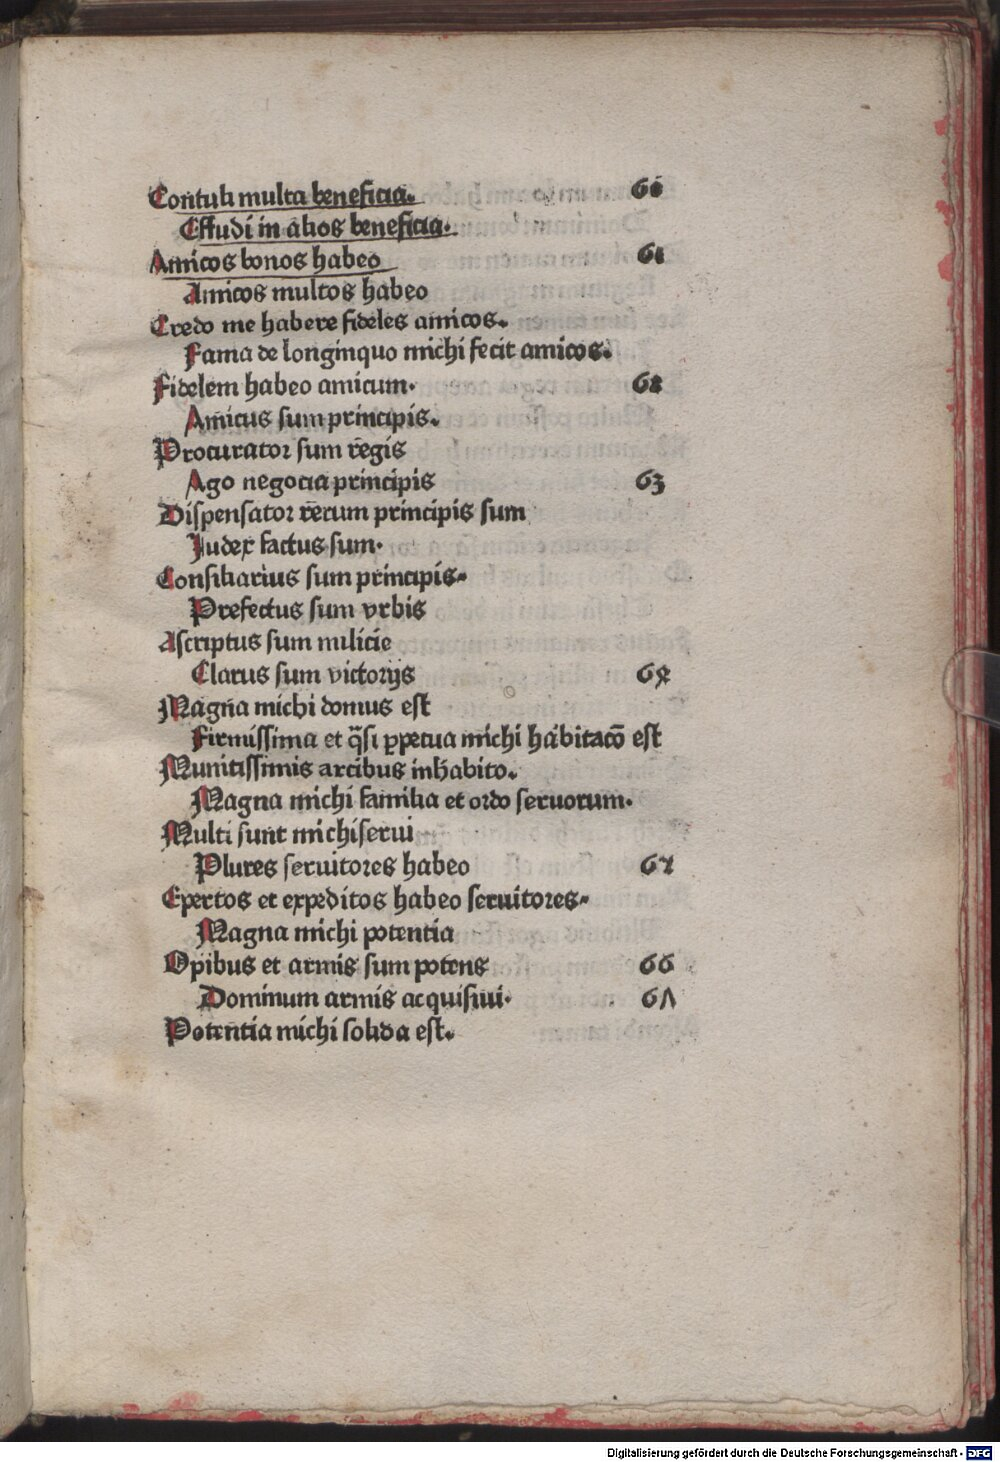 Contuli multa beneficia. 60
Effudi in alios beneficia.
Amicos bonos habeo 61
Amicos multos habeo
Credo me habere fideles amicos.
Fama de longinquo michi fecit amicos.
Fidelem habeo amicum. 62
Amicus sum principis.
Procurator sum regis
Ago negocia principis 63
Dispensator rerum principis sum
Judex factus sum.
Consiliarius sum principis.
Prefectus sum vrbis
Ascriptus sum milicie
Clarus sum victorijs 64
Magna michi domus est
Firmissima et q̃si ꝑpetua michi habitacõ est
Munitissimis arcibus inhabito.
Magna michi familia et ordo seruorum.
Multi sunt michi serui
Plures seruitores habeo 65
Epertos et expeditos habeo seruitores.
Magna michi potentia
Opibus et armis sum potens 66
Dominum armis acquisiui. 67
Potentia michi solida est.
Digitalisierung gefördert durch die Deutsche Forschungsgemeinschaft - DFG